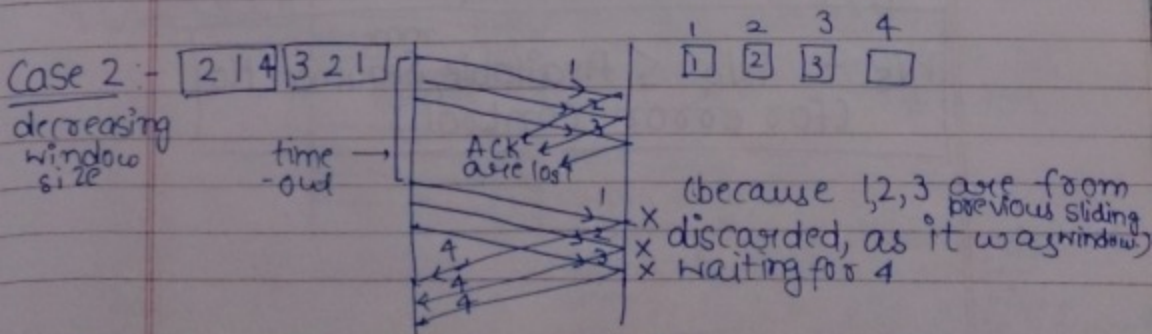 1 2 3 4
Case 2 :- 2 1 4 3 2 1
1 2 3
decreasing
window
size
time
-out
1
2
3
ACK
are lost
1
2
3
4
4
4
(because 1,2,3 are from
previous sliding
window)
x discarded, as it was
x
x waiting for 4